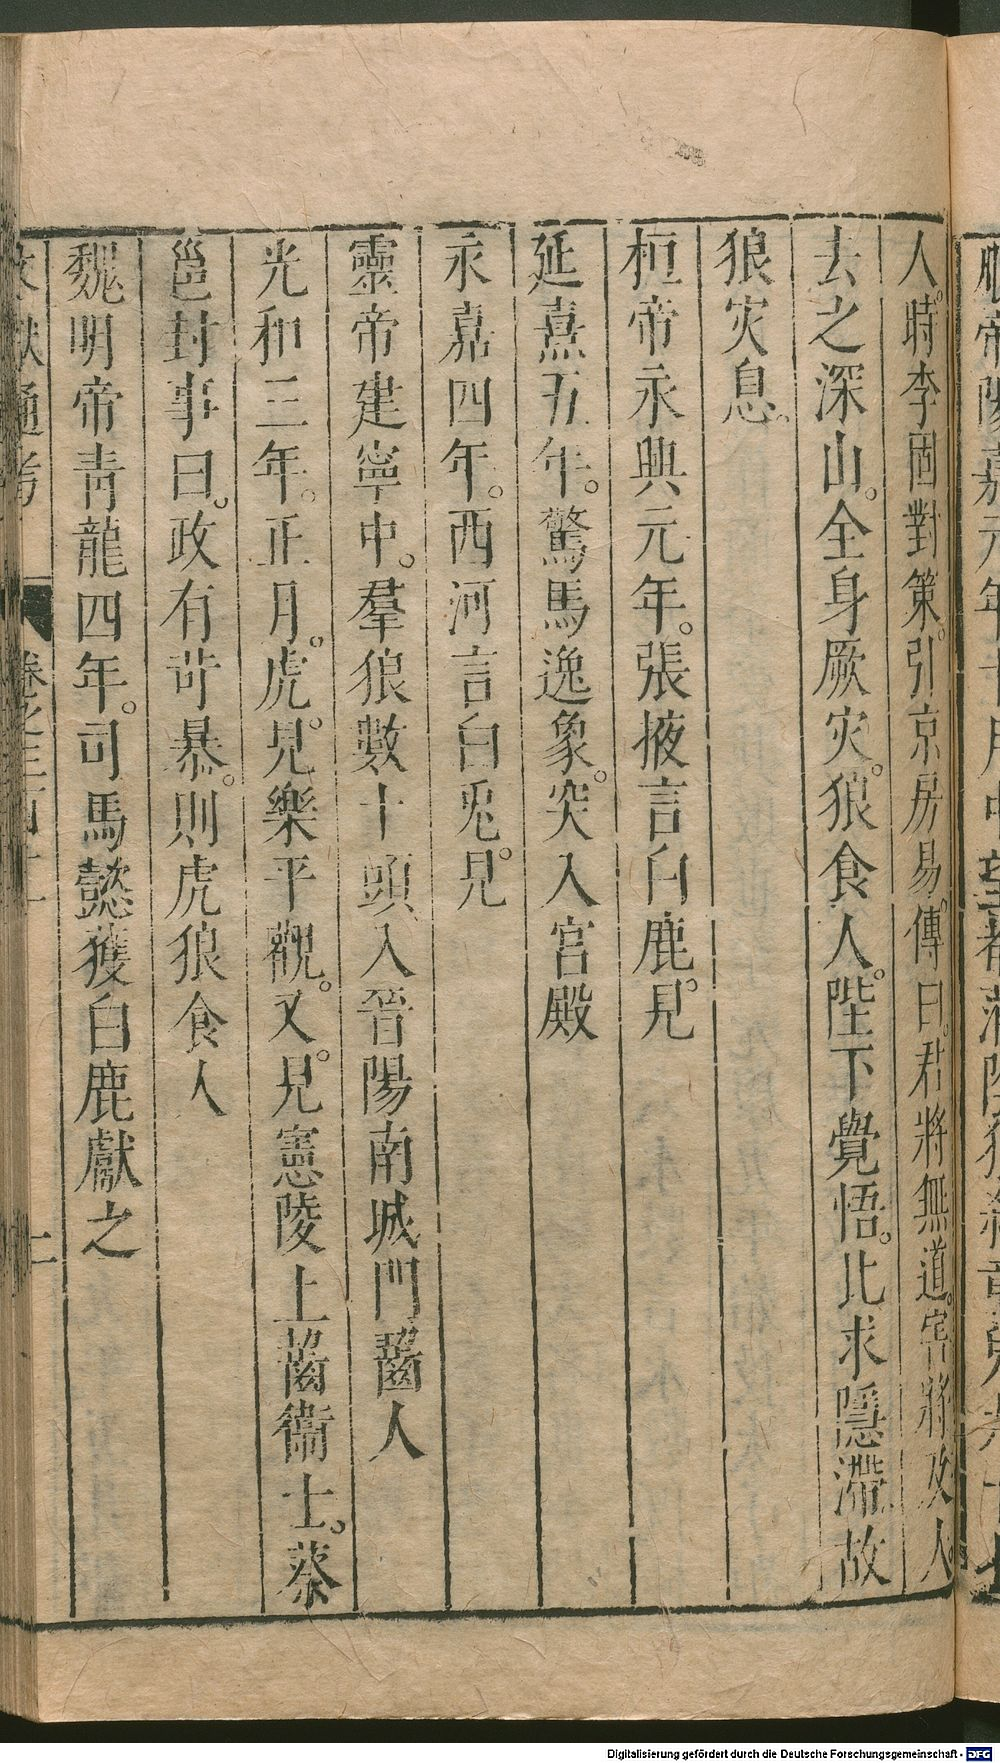 人。時李固對策。引京房易傳曰。君將無道。害將及人
去之深山。全身厥灾。狼食人。陛下覺悟。比求隱滯故
狼灾息。
桓帝永興元年。張掖言白鹿。見
延熹五年。驚馬逸象。突入宮殿
永嘉四年。西河言白兎。見
靈帝建寧中。羣狼數十頭入晉陽南城門齧人
光和三年。正月。虎。見樂平觀。又。見憲陵上齧衞士。蔡
邕封事曰。政有苛暴。則虎狼食人
魏明帝靑龍四年。司馬懿獲白鹿獻之
文獻通考
Digitalisierung gefördert durch die Deutsche Forschungsgemeinschaft - DFG